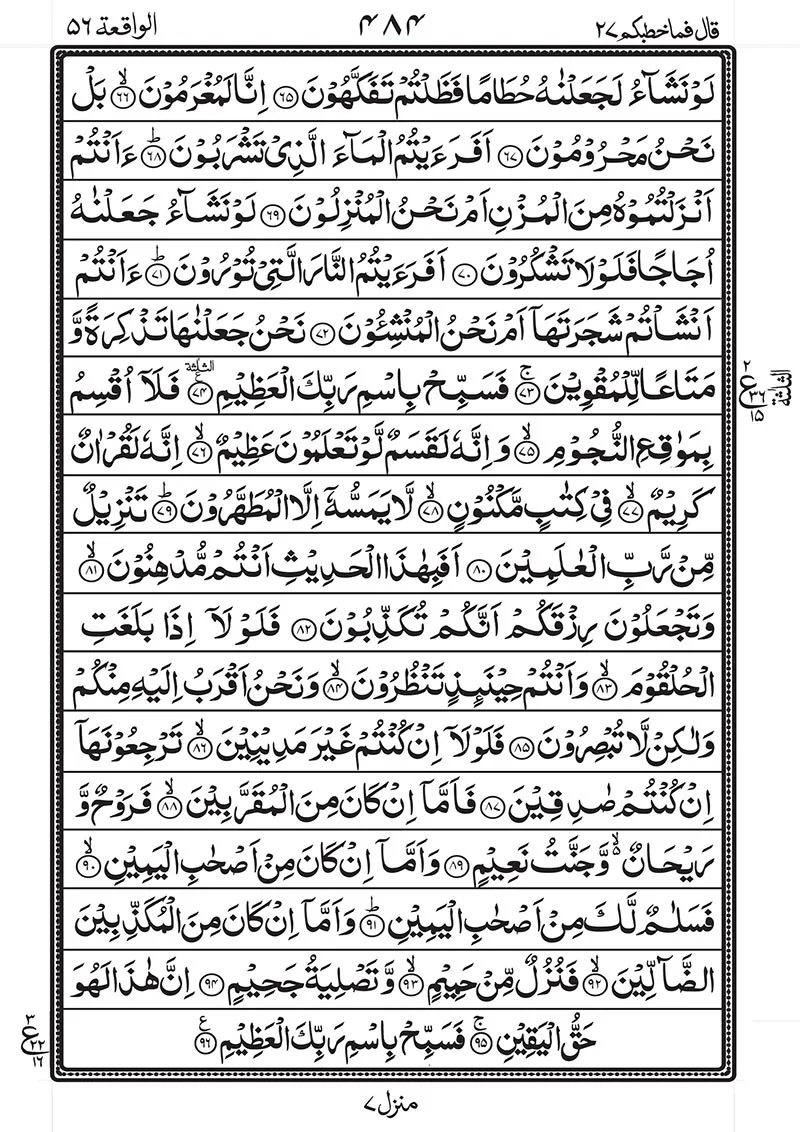 قال فما خطبكم ٢٧
٤٨٤
الواقعة ٥٦
لَوْ نَشَآءُ لَجَعَلْنٰهُ حُطَامًا فَظَلْتُمْ تَفَكَّهُوْنَ ﴿۶۵﴾ اِنَّا لَمُغْرَمُوْنَ ۙ﴿۶۶﴾ بَلْ
نَحْنُ مَحْرُوْمُوْنَ ﴿۶۷﴾ اَفَرَءَيْتُمُ الْمَآءَ الَّذِيْ تَشْرَبُوْنَ ؕ﴿۶۸﴾ ءَاَنْتُمْ
اَنْزَلْتُمُوْهُ مِنَ الْمُزْنِ اَمْ نَحْنُ الْمُنْزِلُوْنَ ﴿۶۹﴾ لَوْ نَشَآءُ جَعَلْنٰهُ
اُجَاجًا فَلَوْلَا تَشْكُرُوْنَ ﴿۷۰﴾ اَفَرَءَيْتُمُ النَّارَ الَّتِيْ تُوْرُوْنَ ؕ﴿۷۱﴾ ءَاَنْتُمْ
اَنْشَاْتُمْ شَجَرَتَهَاۤ اَمْ نَحْنُ الْمُنْشِـُٔوْنَ ﴿۷۲﴾ نَحْنُ جَعَلْنٰهَا تَذْكِرَةً وَّ
مَتَاعًا لِّلْمُقْوِيْنَ ۚ﴿۷۳﴾ فَسَبِّحْ بِاسْمِ رَبِّكَ الْعَظِيْمِ الثلثة ع ﴿۷۴﴾ فَلَاۤ اُقْسِمُ
٢ ع ٣٦ ١٥ الثلثة
بِمَوٰقِعِ النُّجُوْمِ ۙ﴿۷۵﴾ وَ اِنَّهٗ لَقَسَمٌ لَّوْ تَعْلَمُوْنَ عَظِيْمٌ ۙ﴿۷۶﴾ اِنَّهٗ لَقُرْاٰنٌ
كَرِيْمٌ ۙ﴿۷۷﴾ فِيْ كِتٰبٍ مَّكْنُوْنٍ ۙ﴿۷۸﴾ لَّا يَمَسُّهٗۤ اِلَّا الْمُطَهَّرُوْنَ ؕ﴿۷۹﴾ تَنْزِيْلٌ
مِّنْ رَّبِّ الْعٰلَمِيْنَ ﴿۸۰﴾ اَفَبِهٰذَا الْحَدِيْثِ اَنْتُمْ مُّدْهِنُوْنَ ۙ﴿۸۱﴾
وَ تَجْعَلُوْنَ رِزْقَكُمْ اَنَّكُمْ تُكَذِّبُوْنَ ﴿۸۲﴾ فَلَوْلَاۤ اِذَا بَلَغَتِ
الْحُلْقُوْمَ ۙ﴿۸۳﴾ وَ اَنْتُمْ حِيْنَىِٕذٍ تَنْظُرُوْنَ ۙ﴿۸۴﴾ وَ نَحْنُ اَقْرَبُ اِلَيْهِ مِنْكُمْ
وَ لٰكِنْ لَّا تُبْصِرُوْنَ ﴿۸۵﴾ فَلَوْلَاۤ اِنْ كُنْتُمْ غَيْرَ مَدِيْنِيْنَ ۙ﴿۸۶﴾ تَرْجِعُوْنَهَاۤ
اِنْ كُنْتُمْ صٰدِقِيْنَ ﴿۸۷﴾ فَاَمَّاۤ اِنْ كَانَ مِنَ الْمُقَرَّبِيْنَ ۙ﴿۸۸﴾ فَرَوْحٌ وَّ
رَيْحَانٌ ۙ۬ وَّ جَنَّتُ نَعِيْمٍ ﴿۸۹﴾ وَ اَمَّاۤ اِنْ كَانَ مِنْ اَصْحٰبِ الْيَمِيْنِ ۙ﴿۹۰﴾
فَسَلٰمٌ لَّكَ مِنْ اَصْحٰبِ الْيَمِيْنِ ؕ﴿۹۱﴾ وَ اَمَّاۤ اِنْ كَانَ مِنَ الْمُكَذِّبِيْنَ
الضَّآلِّيْنَ ۙ﴿۹۲﴾ فَنُزُلٌ مِّنْ حَمِيْمٍ ۙ﴿۹۳﴾ وَّ تَصْلِيَةُ جَحِيْمٍ ﴿۹۴﴾ اِنَّ هٰذَا لَهُوَ
حَقُّ الْيَقِيْنِ ۚ﴿۹۵﴾ فَسَبِّحْ بِاسْمِ رَبِّكَ الْعَظِيْمِ ع ﴿۹۶﴾
٣ ع ٢٢ ١٦
منزل ٧